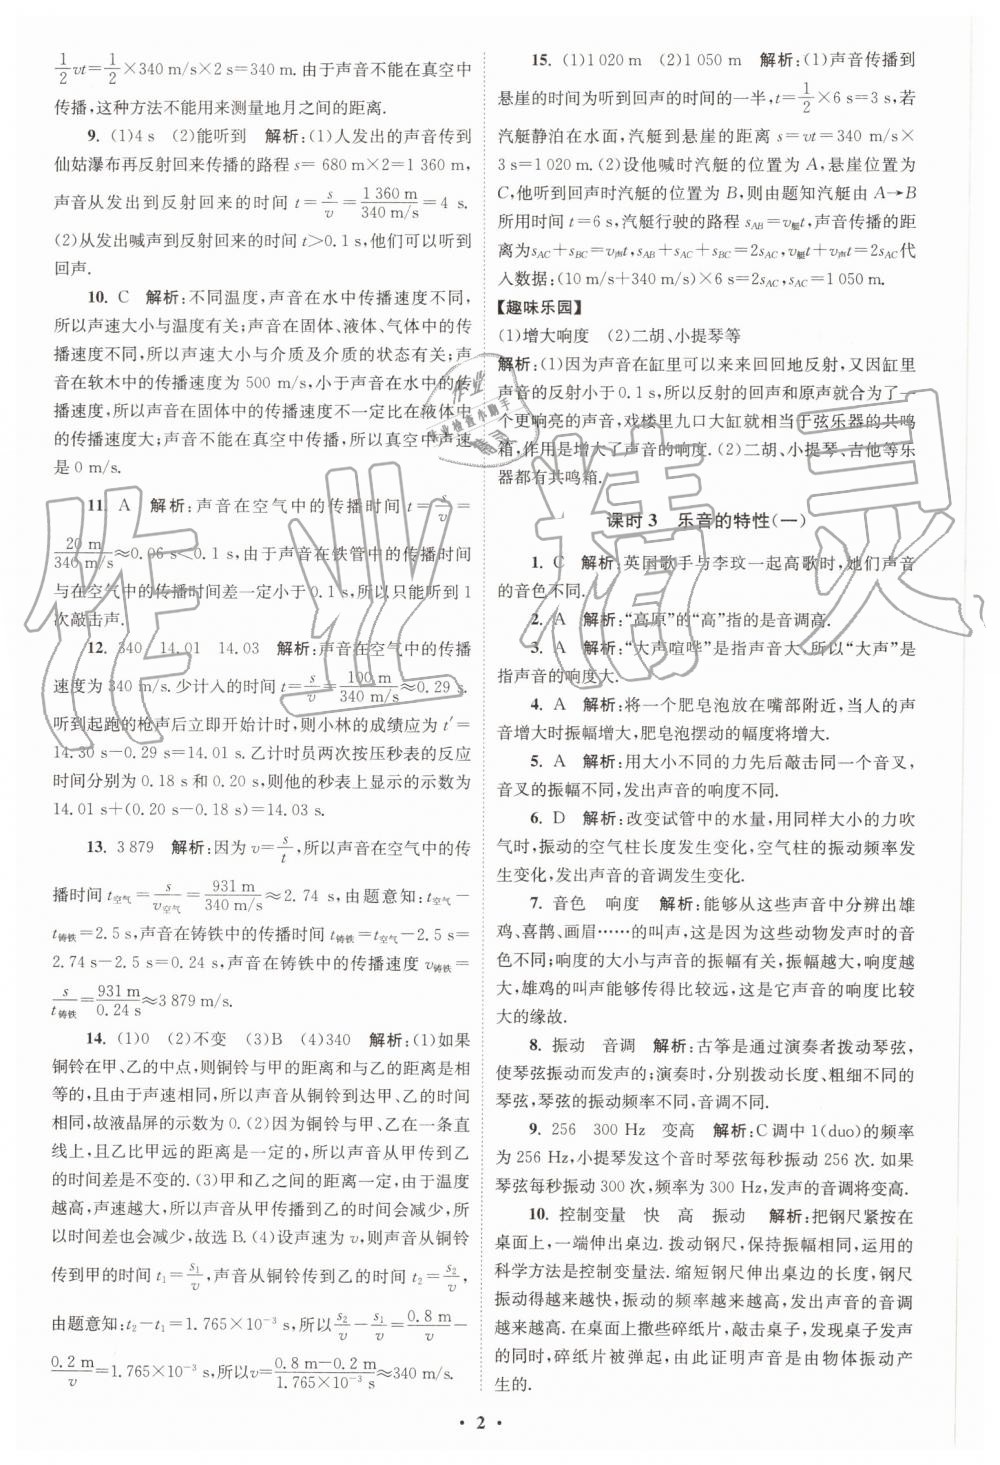 1/2vt=1/2×340 m/s×2 s=340 m.由于声音不能在真空中
传播,这种方法不能用来测量地月之间的距离.
9. (1)4 s (2)能听到 解析:(1)人发出的声音传到
仙姑瀑布再反射回来传播的路程 s= 680 m×2=1 360 m,
声音从发出到反射回来的时间 t=s/v=1 360 m/340 m/s=4 s.
(2)从发出喊声到反射回来的时间 t>0.1 s,他们可以听到
回声.
10. C 解析:不同温度,声音在水中传播速度不同,
所以声速大小与温度有关;声音在固体、液体、气体中的传
播速度不同,所以声速大小与介质及介质的状态有关;声
音在软木中的传播速度为 500 m/s,小于声音在水中的传
播速度,所以声音在固体中的传播速度不一定比在液体中
传播速度大;声音不能在真空中传播,所以真空中声速
是 0 m/s.
11. A 解析:声音在空气中的传播时间 t=s/v=
20 m/340 m/s≈0.06 s<0.1 s,由于声音在铁管中的传播时间
与在空气中的传播时间差一定小于 0.1 s,所以只能听到 1
次敲击声.
12. 340 14.01 14.03 解析:声音在空气中的传播
速度为 340 m/s.少计入的时间 t=s/v=100 m/340 m/s≈0.29 s.
听到起跑的枪声后立即开始计时,则小林的成绩应为 t′=
14.30 s−0.29 s=14.01 s.乙计时员两次按压秒表的反应
时间分别为 0.18 s 和 0.20 s,则他的秒表上显示的示数为
14.01 s+(0.20 s−0.18 s)=14.03 s.
13. 3 879 解析:因为 v=s/t,所以声音在空气中的传
播时间 t空气=s/v空气=931 m/340 m/s≈2.74 s,由题意知:t空气−
t铸铁=2.5 s,声音在铸铁中的传播时间 t铸铁=t空气−2.5 s=
2.74 s−2.5 s=0.24 s,声音在铸铁中的传播速度 v铸铁=
s/t铸铁=931 m/0.24 s≈3 879 m/s.
14. (1)0 (2)不变 (3)B (4)340 解析:(1)如果
铜铃在甲、乙的中点,则铜铃与甲的距离和与乙的距离是相
等的,且由于声速相同,所以声音从铜铃到达甲、乙的时间相
同,故液晶屏的示数为 0.(2)因为铜铃与甲、乙在一条直
线上,且乙比甲远的距离是一定的,所以声音从甲传到乙
的时间差是不变的.(3)甲和乙之间的距离一定,由于温度
越高,声速越大,所以声音从甲传播到乙的时间会减少,所
以示数会减少,故选 B.(4)设声速为 v,则声音从铜铃
传到甲的时间 t₁=s₁/v,声音从铜铃传到乙的时间 t₂=s₂/v,
由题意知:t₂−t₁=1.765×10⁻³ s,所以s₂/v−s₁/v=0.8 m/v−
0.2 m/v=1.765×10⁻³ s,所以v=0.8 m−0.2 m/1.765×10⁻³ s≈340 m/s.
15. (1)1 020 m (2)1 050 m 解析:(1)声音传播到
悬崖的时间为听到回声的时间的一半,t=1/2×6 s=3 s,若
汽艇静泊在水面,汽艇到悬崖的距离 s=vt=340 m/s×
3 s=1 020 m.(2)设他喊时汽艇的位置为 A,悬崖位置为
C,他听到回声时汽艇的位置为 B,则由题知汽艇由 A→B
所用时间 t=6 s,汽艇行驶的路程 sAB=v艇t,声音传播的距
离为sAC+sBC=v声t,sAB+sAC+sBC=2sAC,v艇t+v声t=2sAC代
入数据:(10 m/s+340 m/s)×6 s=2sAC,sAC=1 050 m.
【趣味乐园】
(1)增大响度 (2)二胡、小提琴等
解析:(1)因为声音在缸里可以来来回回地反射,又因缸里
声音的反射小于 0.1 s,所以反射的回声和原声就合成为了一
个更响亮的声音,戏楼里九口大缸就相当于弦乐器的共鸣
箱,作用是增大了声音的响度.(2)二胡、小提琴、吉他等乐
器都有共鸣箱.
课时 3 乐音的特性(一)
1. C 解析:英国歌手与李玟一起高歌时,她们声音
的音色不同.
2. A 解析:“高原”的“高”指的是音调高.
3. A 解析:“大声喧哗”是指声音大,所以“大声”是
指声音的响度大.
4. A 解析:将一个肥皂泡放在嘴部附近,当人的声
音增大时振幅增大,肥皂泡摆动的幅度将增大.
5. A 解析:用大小不同的力先后敲击同一个音叉,
音叉的振幅不同,发出声音的响度不同.
6. D 解析:改变试管中的水量,用同样大小的力吹
气时,振动的空气柱长度发生变化,空气柱的振动频率发
生变化,发出声音的音调发生变化.
7. 音色 响度 解析:能够从这些声音中分辨出雄
鸡、喜鹊、画眉……的叫声,是因为这些动物发声时的音
色不同;响度的大小与声音的振幅有关,振幅越大,响度越
大,雄鸡的叫声能够传得比较远,这是它声音的响度比较
大的缘故.
8. 振动 音调 解析:古筝是通过演奏者拨动琴弦,
使琴弦振动而发声的;演奏时,分别拨动长度、粗细不同的
琴弦,琴弦的振动频率不同,音调不同.
9. 256 300 Hz 变高 解析:C 调中 1(duo)的频率
为 256 Hz,小提琴发这个音时琴弦每秒振动 256 次.如果
琴弦每秒振动 300 次,频率为 300 Hz,发声的音调将变高.
10. 控制变量 快 高 振动 解析:把钢尺紧按在
桌面上,一端伸出桌边.拨动钢尺,保持振幅相同,运用的
科学方法是控制变量法.缩短钢尺伸出桌边的长度,钢尺
振动得越来越快,振动的频率越来越高,发出声音的音调
越来越高.在桌面上撒些碎纸片,敲击桌子,发现桌子发声
的同时,碎纸片被弹起,由此证明声音是由物体振动产
生的.
• 2 •
作业精灵